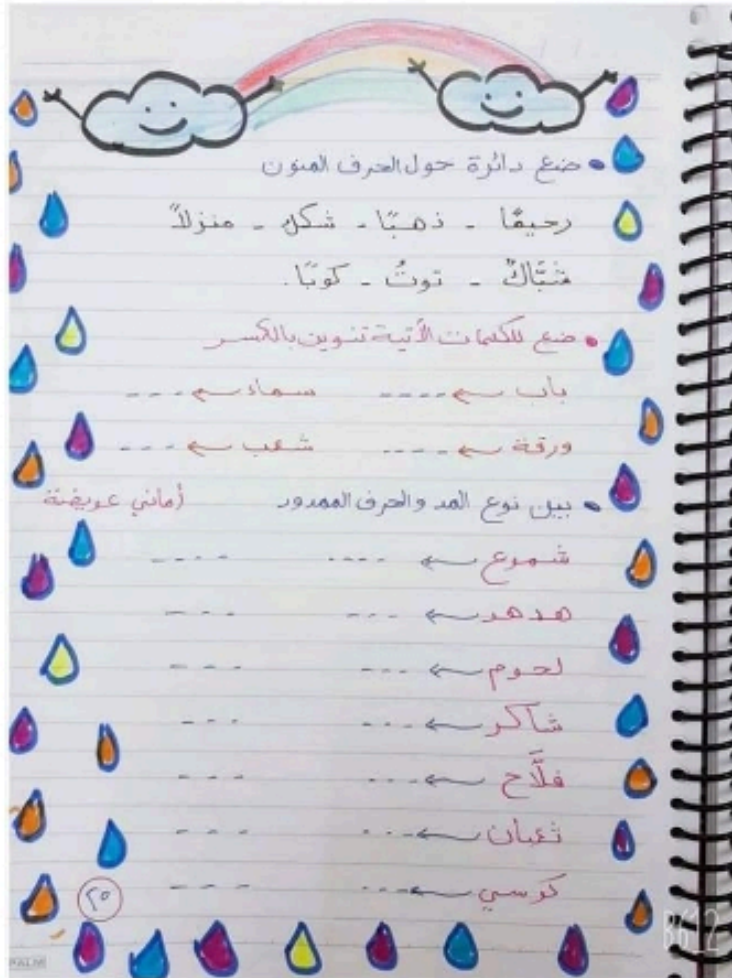 • ضع دائرة حول الحرف المنون
رحيمًا - ذهبًا - شكل - منزلاً
شبَّاكٌ - توتٌ - كوبًا.
• ضع للكلمات الأتية تنوين بالكسر
باب ← ---- سماء ← ---
ورقة ← ---- شعب ← ---
• بين نوع المد والحرف الممدود أماني عويضة
شموع ← ---- ----
هدهد ← --- ---
لحوم ← --- ---
شاكر ← --- ---
فلَّاح ← --- ---
ثعبان ← --- ---
كرسي ← --- ---
٢٥
PALM
B612